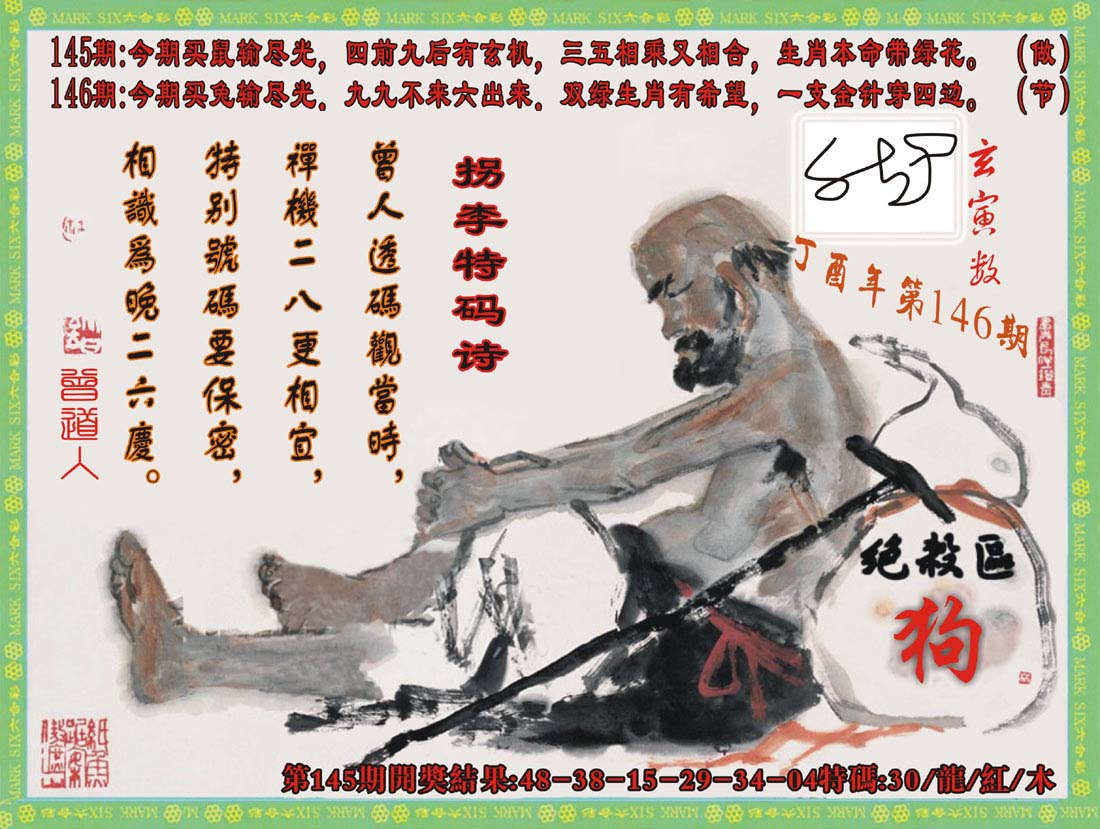 MARK SIX六合彩
145期:今期买鼠输尽光，四前九后有玄机，三五相乘又相合，生肖本命带绿花。（做）
146期:今期买兔输尽光．九九不来六出来．双绿生肖有希望，一支金针穿四边。（节）
玄寅数
丁酉年第146期
拐李特码诗
曾人透碼觀當時，
禪機二八更相宜，
特别號碼要保密，
相識為晚二六慶。
曾道人
绝殺區
狗
第145期開獎結果:48-38-15-29-34-04特碼:30/龍/紅/木